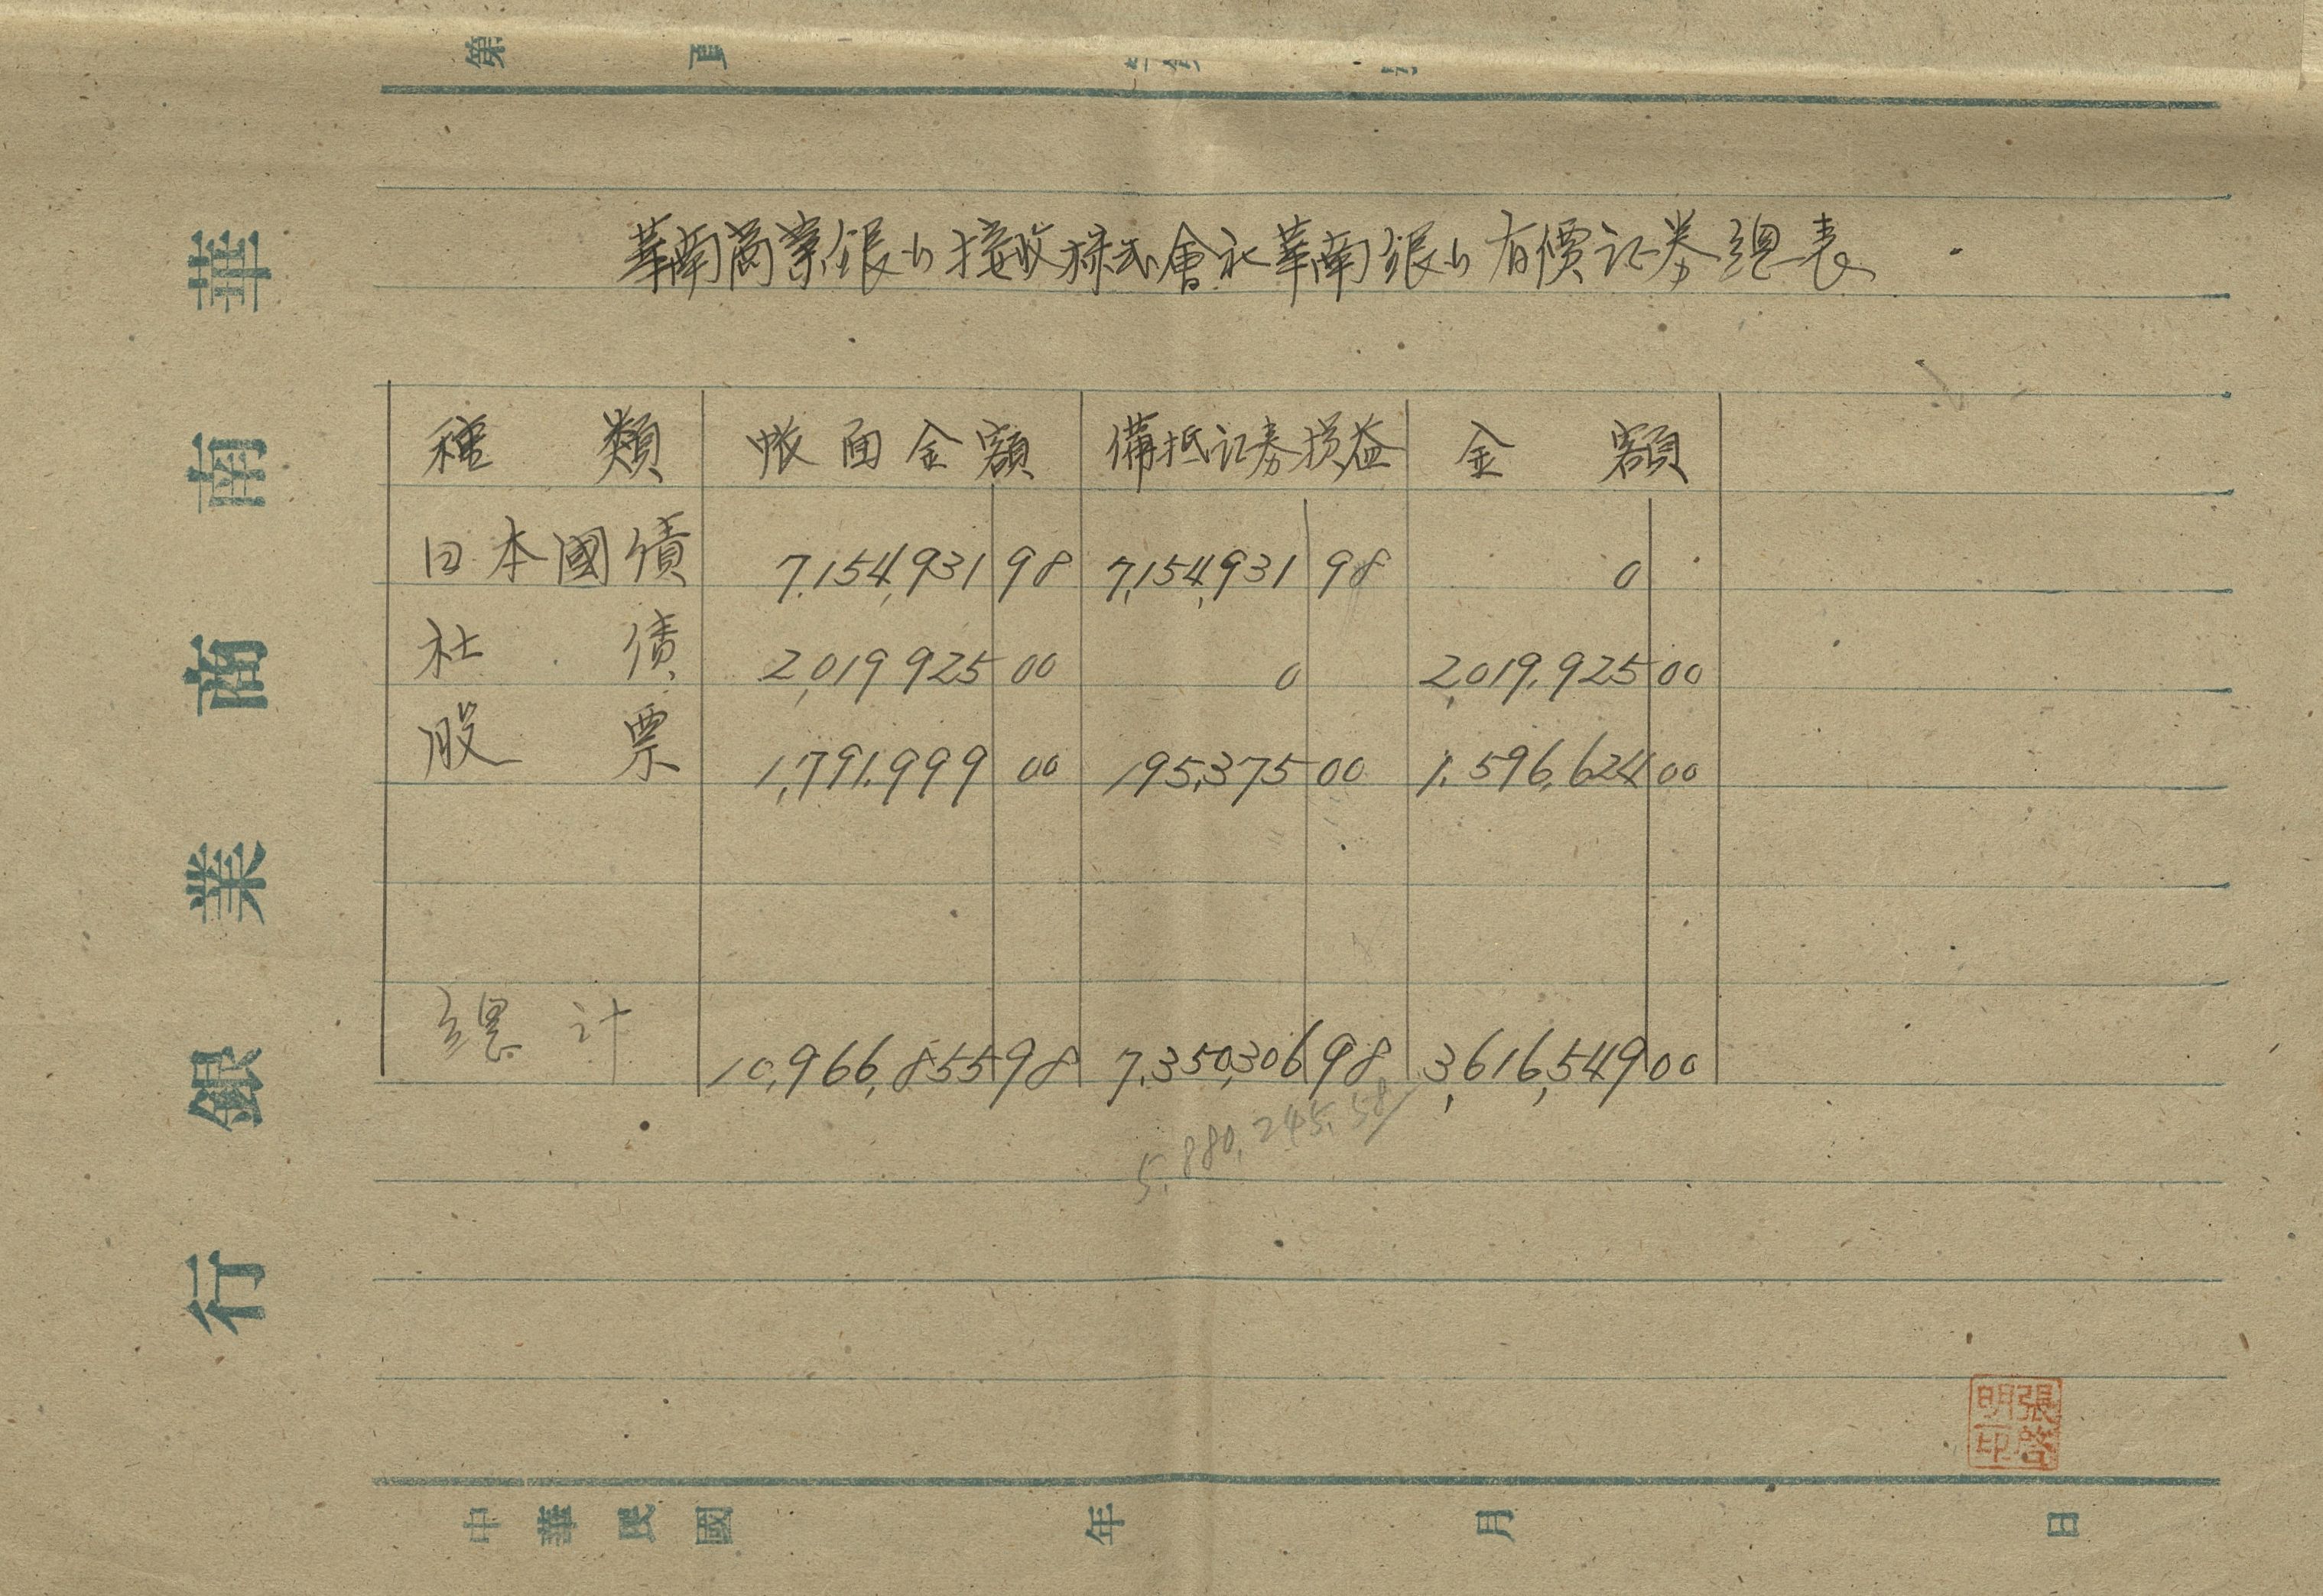 華南商業銀行接收株式會社華南銀行有價証券總表
種類 帐面金額 備抵証券損益 金額
日本國債 7,154,931 98 7,154,931 98 0
社債 2,019,925 00 0 2,019,925 00
股票 1,791,999 00 195,375 00 1,596,624 00
總計 10,966,855 98 7,350,306 98 3,616,549 00
5,880,245.58
華南商業銀行
第 頁
中華民國 年 月 日
張啓明印